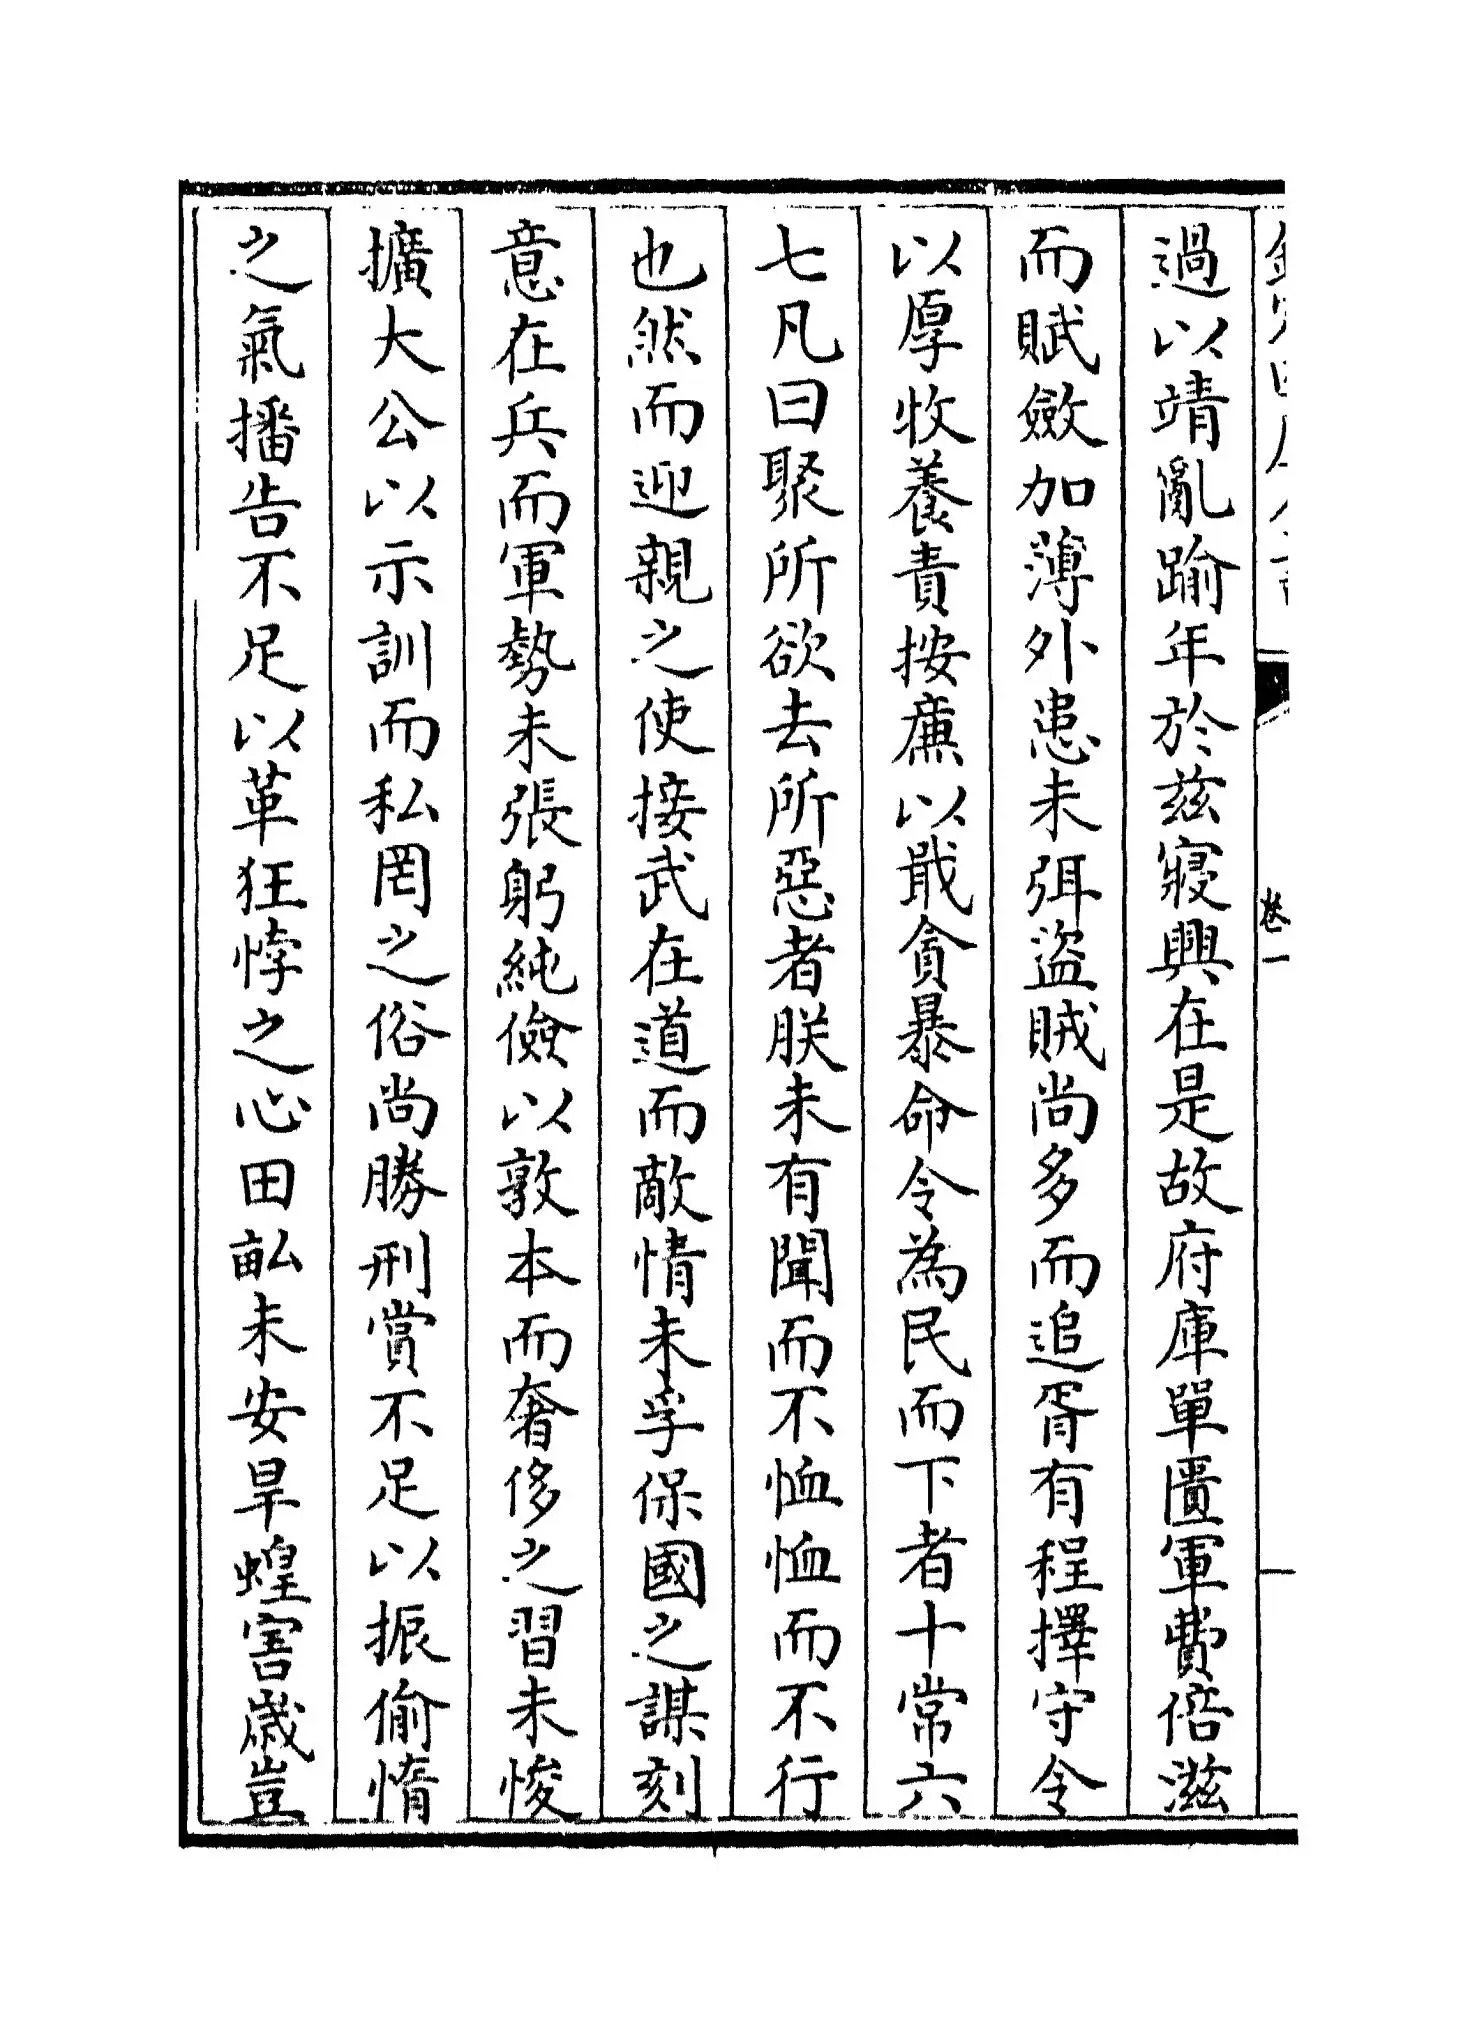 過以靖亂踰年於兹寢興在是故府庫單匱軍費倍滋
而賦斂加薄外患未弭盜賊尚多而追胥有程擇守令
以厚收養責按廉以戢貪暴命令為民而下者十常六
七凡曰聚所欲去所惡者朕未有聞而不恤恤而不行
也然而迎親之使接武在道而敵情未孚保國之謀刻
意在兵而軍勢未張躬純儉以敦本而奢侈之習未悛
擴大公以示訓而私罔之俗尚勝刑賞不足以振偷惰
之氣播告不足以革狂悖之心田畝未安旱蝗害歲豈
卷一